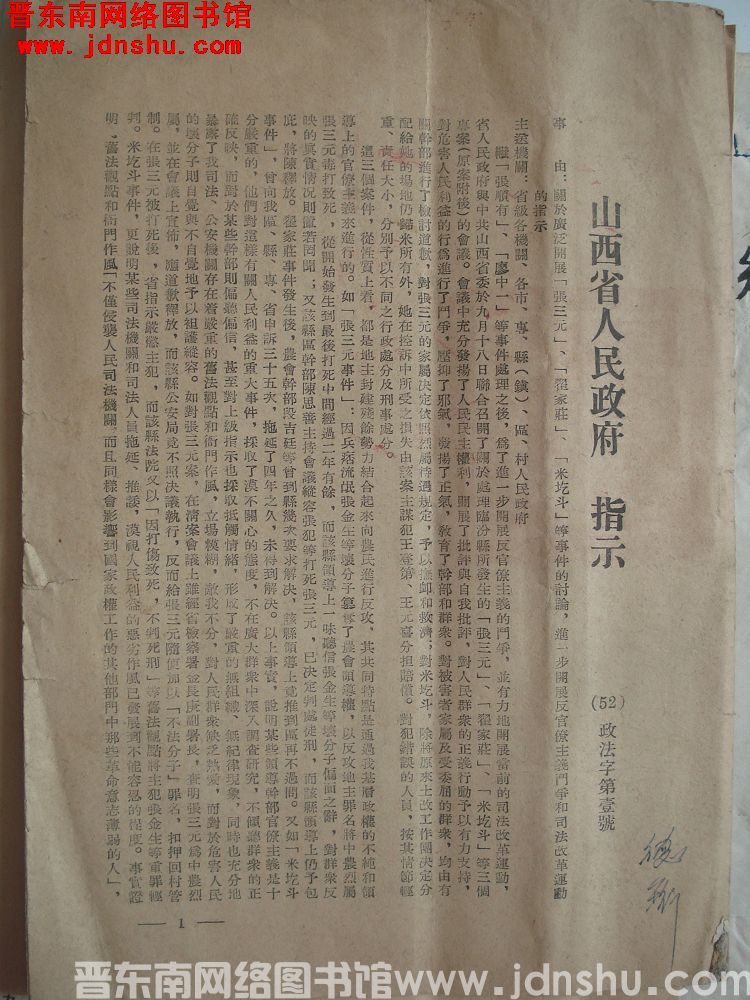 晋东南网络图书馆
www.jdnshu.com
山西省人民政府 指示
(52)政法字第壹號
事 由:關於廣泛開展「張三元」、「翟家莊」、「米圪斗」等事件的討論,進一步開展反官僚主義鬥爭和司法改革運動
的指示
主送機關:省級各機關、各市、專、縣(鎮)、區、村人民政府
繼「張順有」、「廖中一」等事件處理之後,爲了進一步開展反官僚主義的鬥爭,並有力地開展當前的司法改革運動,
省人民政府與中共山西省委於九月十八日聯合召開了關於處理臨汾縣所發生的「張三元」、「翟家莊」、「米圪斗」等三個
專案(原案附後)的會議。會議中充分發揚了人民民主權利,開展了批評與自我批評,對人民羣衆的正義行動予以有力支持,
對危害人民利益的行爲進行了鬥爭,壓抑了邪氣,發揚了正氣,敎育了幹部和群衆。對被害者家屬及受委屈的群衆,均由有
關幹部進行了檢討道歉,對張三元的家屬決定依照烈屬待遇規定,予以撫卹和救濟;對米圪斗,除將原來土改工作團決定分
配給她的場地仍歸米所有外,她在控訴中所受之損失由該案主謀犯王臺第、王元喜分担賠償。對犯錯誤的人員,按其情節輕
重、責任大小,分別予以不同之行政處分及刑事處分。
這三個案件,從性質上看,都是地主封建殘餘勢力結合起來向農民進行反攻,其共同特點是通過我基層政權的不純和領
導上的官僚主義來進行的。如「張三元事件」:因兵痞流氓張金生等壞分子篡奪了農會領導權,以反攻地主罪名將中農烈屬
張三元毒打致死,從開始發生到最後打死中間經過二年有餘,而該縣領導上一味聽信張金生等壞分子偏面之辭,對群衆反
映的真實情況則置若罔聞;又該縣區幹部陳思善主持會議縱容張犯等打死張三元,已決定判處徒刑,而該縣領導上仍予包
庇,將陳釋放。翟家莊事件發生後,農會幹部段吉廷等曾到縣幾次要求解決,該縣領導上竟推到區再不過問。又如「米圪斗
事件」,曾向我區、縣、專、省申訴三十五次,拖延了四年之久,未得到解決。以上事實,說明某些領導幹部官僚主義是十
分嚴重的,他們對這樣有關人民利益的重大事件,採取了漠不關心的態度,不在廣大群衆中深入調查研究,不傾聽群衆的正
確反映,而對於某些幹部則偏聽偏信,甚至對上級指示也採取抵觸情緒,形成了嚴重的無組織、無紀律現象,同時也充分地
暴露了我司法、公安機關存在着嚴重的舊法觀點和衙門作風,立場模糊,敵我不分,對人民羣衆缺乏熱愛,而對於危害人民
的壞分子則自覺與不自覺地予以袒護縱容。如對張三元案,在淸案會議上雖經省檢察署金長庚副署長,查明張三元爲中農烈
屬,並在會議上宣佈,應道歉釋放,而該縣公安局竟不照決議執行,反而給張三元隨便加以「不法分子」罪名,扣押回村管
制。在張三元被打死後,省指示嚴懲主犯,而該縣法院又以「因打傷致死,不判死刑」等舊法觀點將主犯張金生等重罪輕
判。米圪斗事件,更說明某些司法機關和司法人員拖延、推諉、漠視人民利益的惡劣作風已發展到不能容忍的程度。事實證
明,舊法觀點和衙門作風「不僅侵襲人民司法機關,而且同樣會影響到國家政權工作的其他部門中那些革命意志薄弱的人」,
— 1 —
晋东南网络图书馆www.jdnshu.com